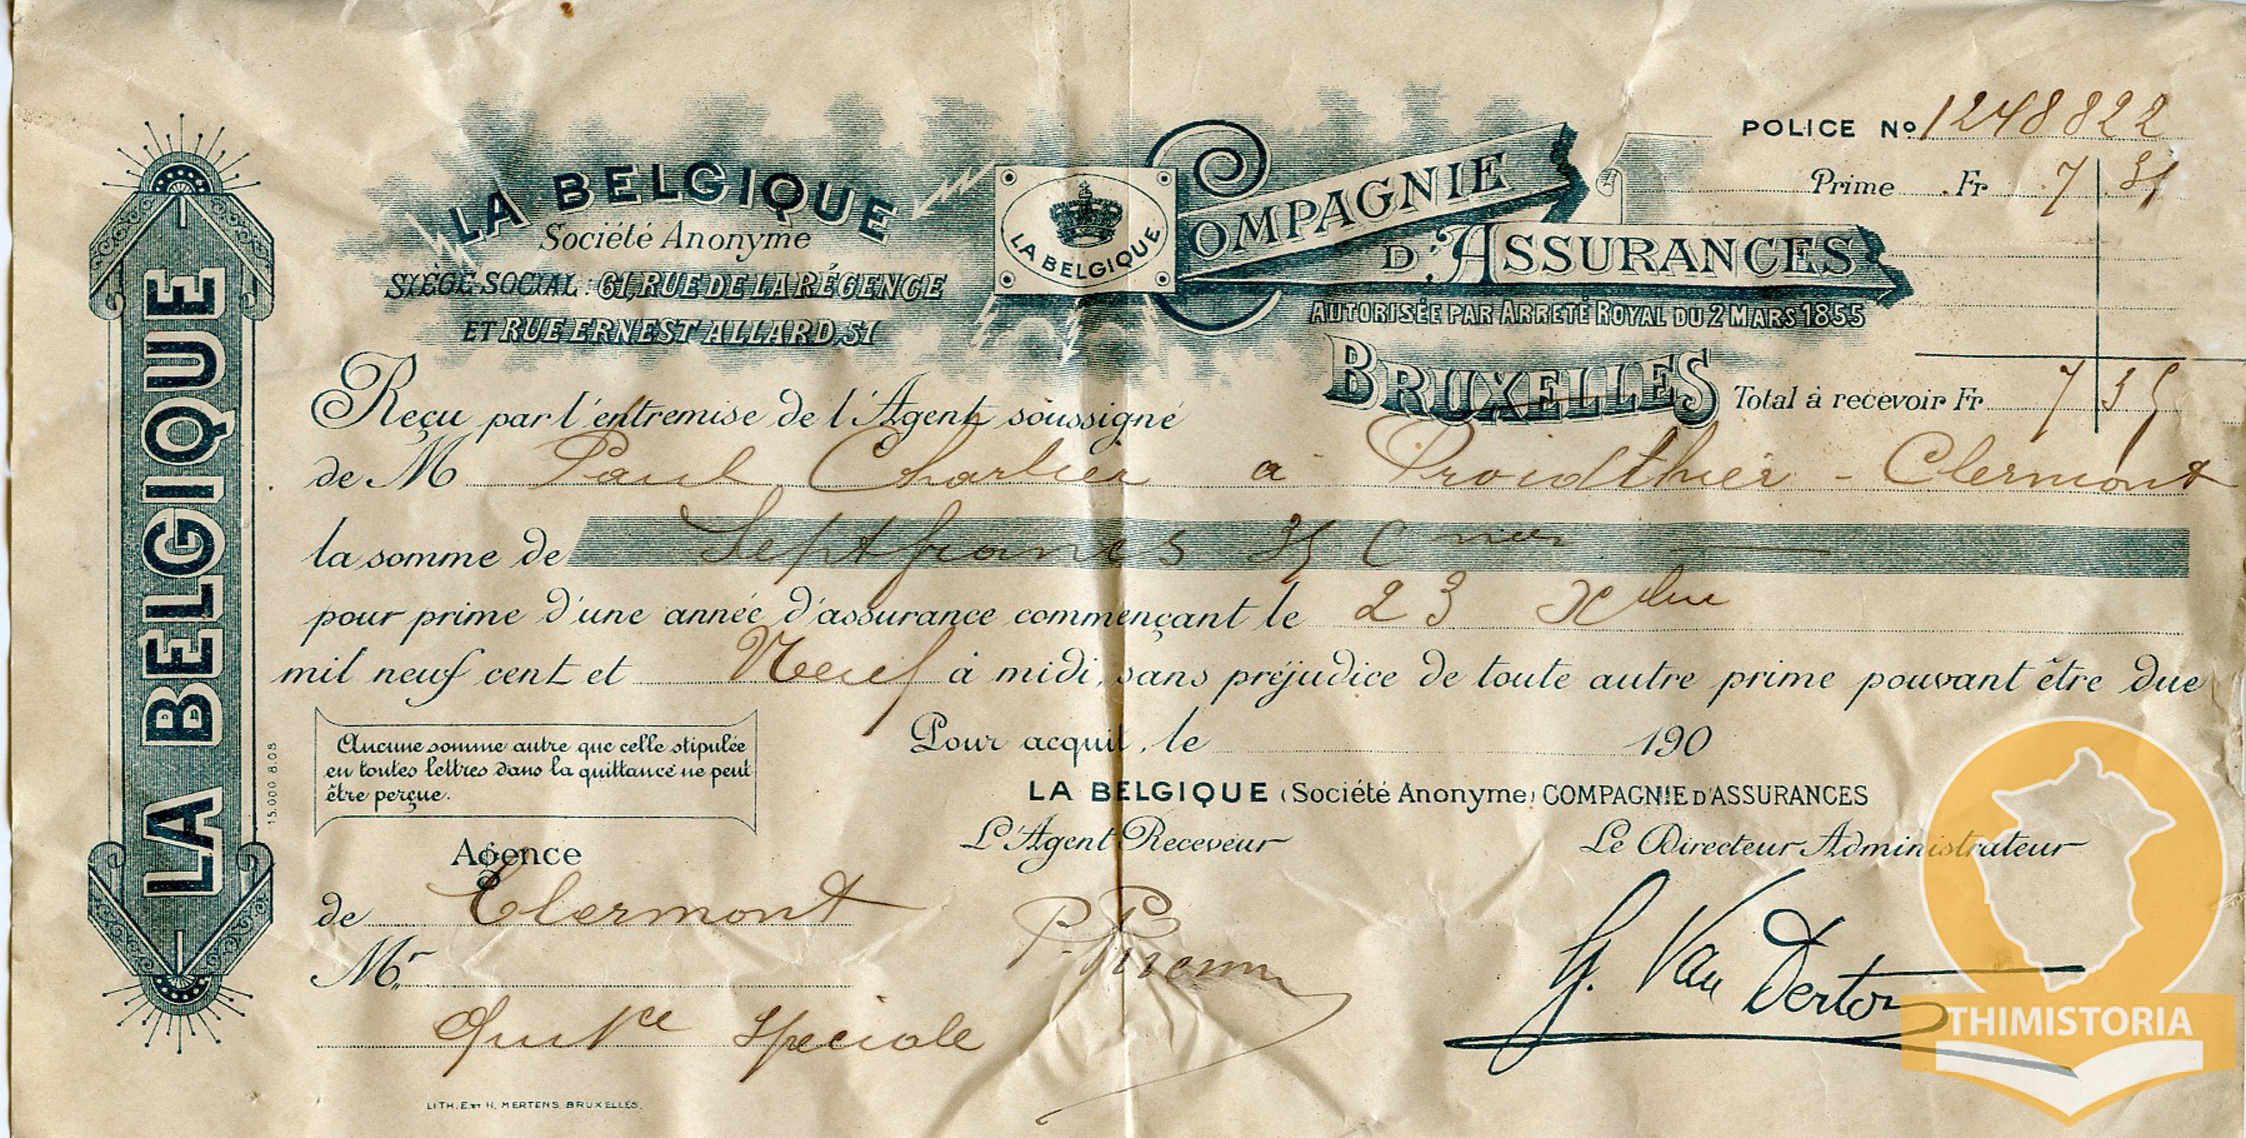 LA BELGIQUE
LA BELGIQUE
Société Anonyme
SIÈGE SOCIAL: 61, RUE DE LA RÉGENCE
ET RUE ERNEST ALLARD, 51
LA BELGIQUE
COMPAGNIE
D'ASSURANCES
AUTORISÉE PAR ARRÊTÉ ROYAL DU 2 MARS 1855
BRUXELLES
POLICE No 1248822
Prime Fr 7 35
Total à recevoir Fr 7 35
Reçu par l'entremise de l'Agent soussigné
de M Paul Charlier à Froidthier - Clermont
la somme de Sept francs 35 C
pour prime d'une année d'assurance commençant le 23 Xbre
mil neuf cent et Neuf à midi, sans préjudice de toute autre prime pouvant être due
Pour acquit, le 190
Aucune somme autre que celle stipulée
en toutes lettres dans la quittance ne peut
être perçue.
15.000 8.08
LA BELGIQUE (Société Anonyme) COMPAGNIE D'ASSURANCES
L'Agent Receveur
Le Directeur Administrateur
Agence
de Clermont
Mr
Quitce Spéciale
G. Van Dertor
LITH. E. ET H. MERTENS, BRUXELLES.
THIMISTORIA